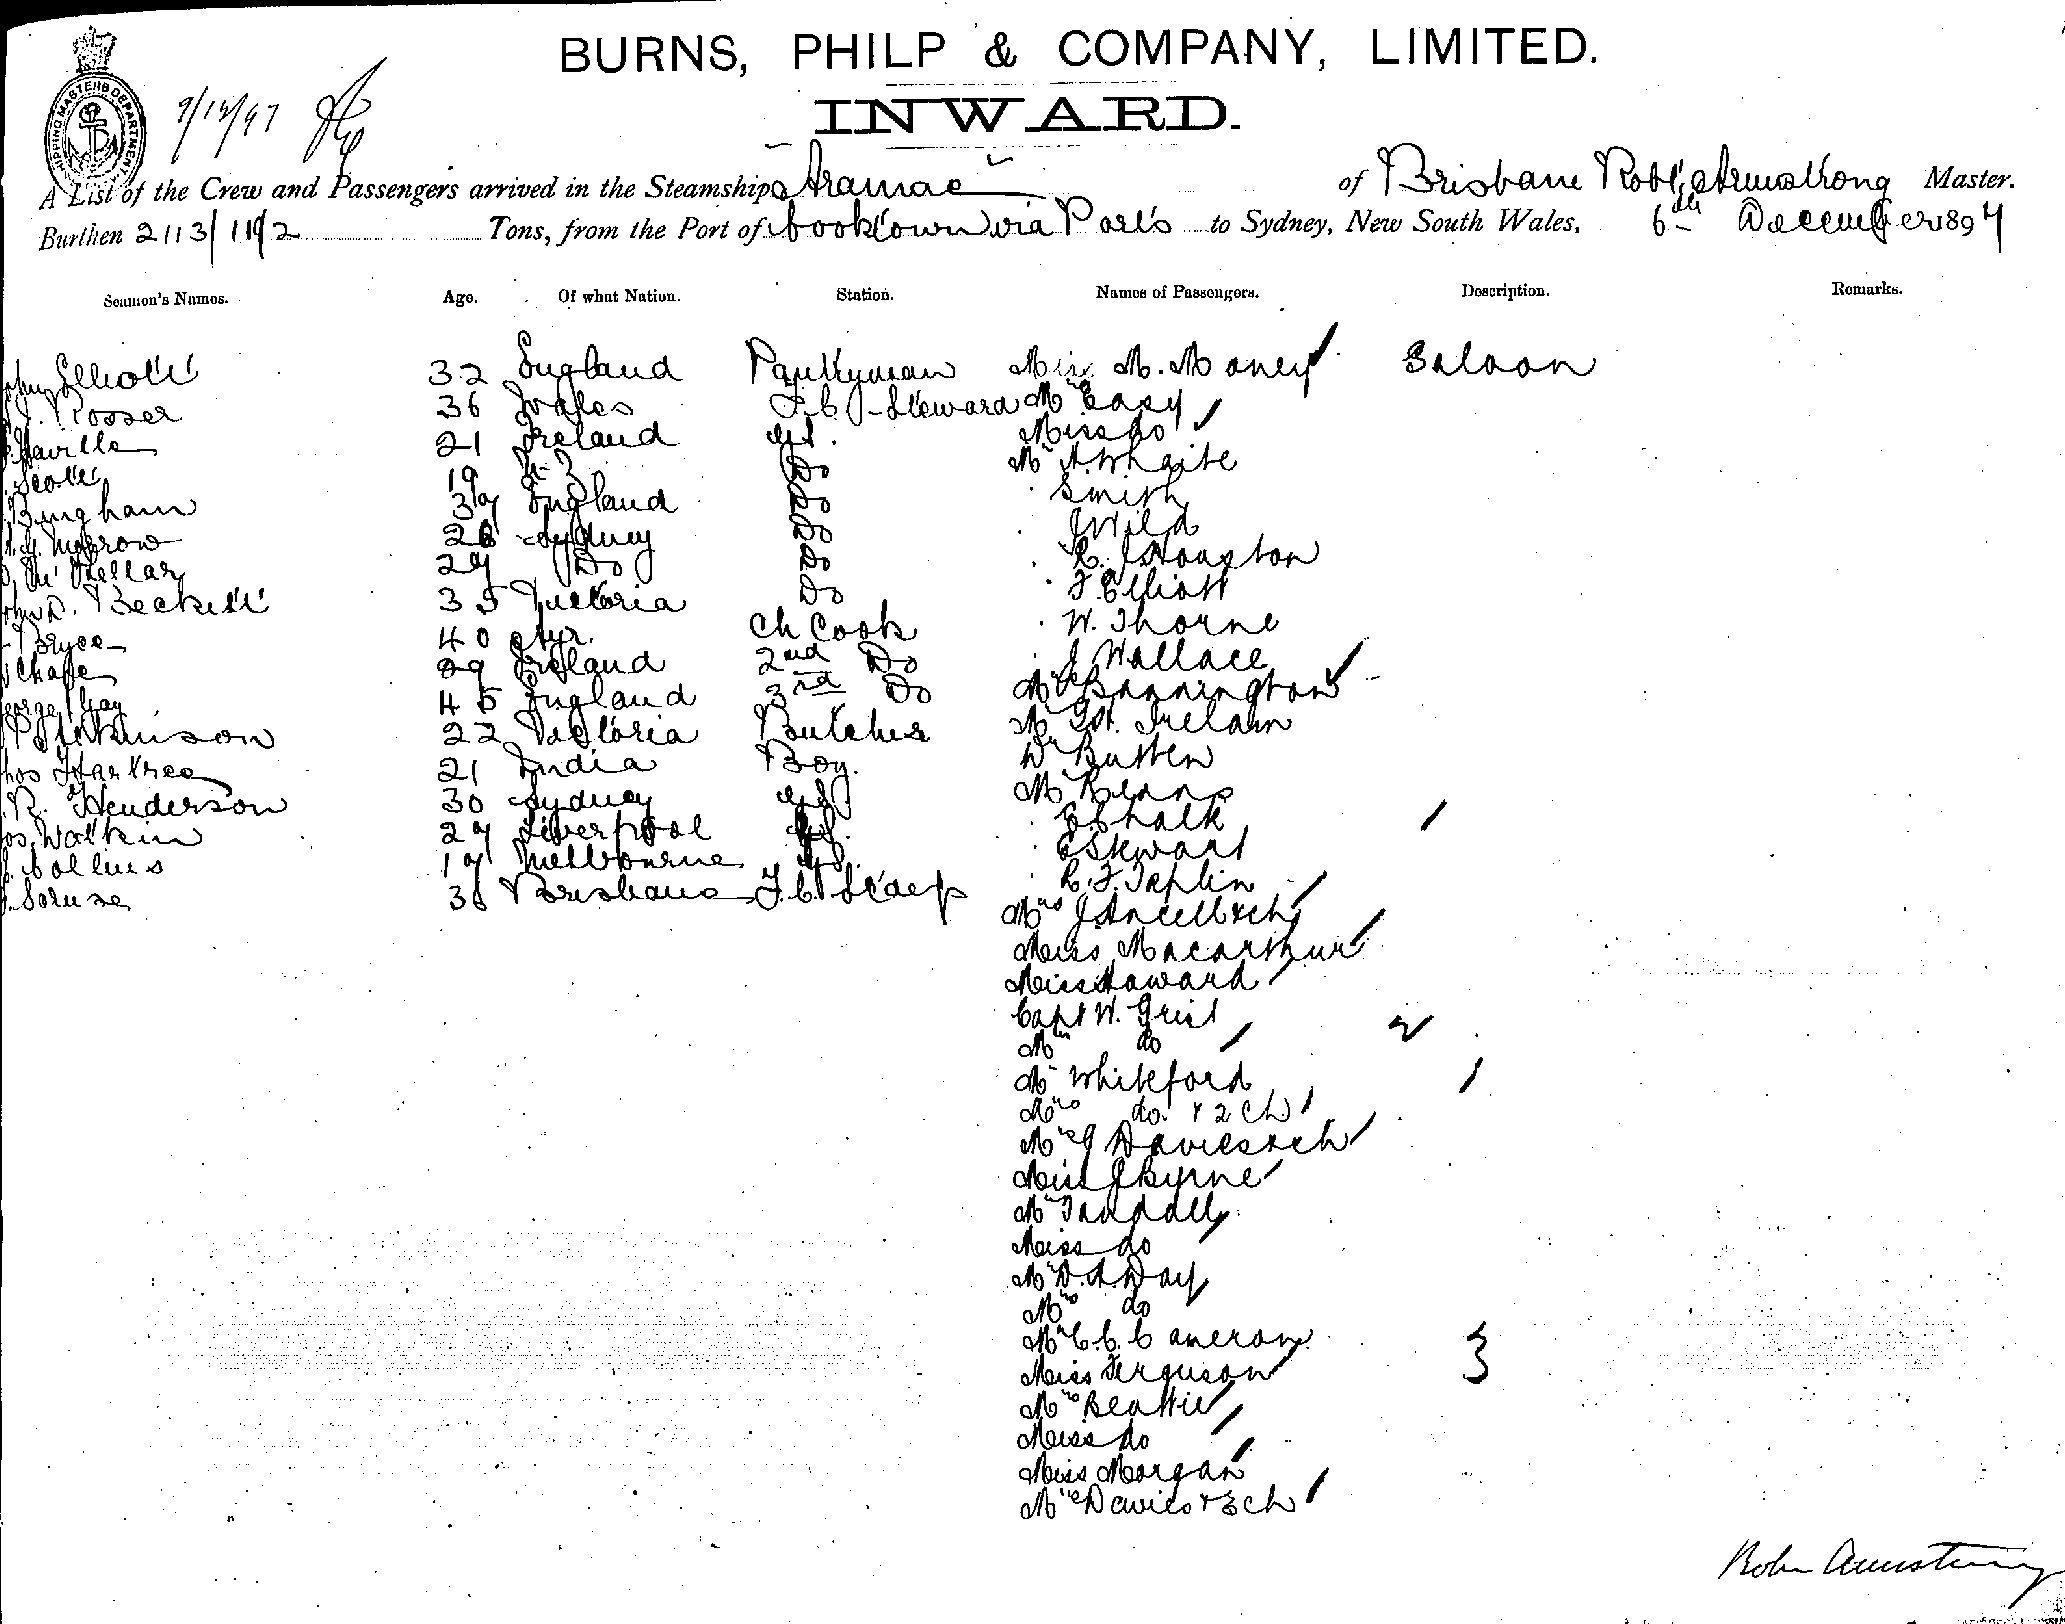 BURNS, PHILP & COMPANY, LIMITED.
INWARD.
9/12/97
A List of the Crew and Passengers arrived in the Steamship Aramac of Brisbane Robt Armstrong Master.
Burthen 2113/1192 Tons, from the Port of Cooktown via Ports to Sydney, New South Wales, 6th December 1897
Seamen's Names. Age. Of what Nation. Station. Names of Passengers. Description. Remarks.
John Elliott 32 England Pantryman Miss M. Money Saloon
Rosser 36 Wales F.C. Steward Mrs Easy
Haville 21 Ireland Miss do
Scott 19 Do Mr A. Whaite
Bingham 39 England Do Smith
Morrow 26 Sydney Do Wild
McKellar 29 Do Do R. Houston
John D. Beckett 35 Victoria Do F. Elliott
Bryce 40 Ch Cook W. Thorne
Chape 29 Ireland 2nd Do J Wallace
George Gay 45 England 3rd Do Mrs Bannington
Parkinson 22 Victoria Butcher Mr St. Ireland
Thos Hartree 21 India Boy. Dr Butten
R. Henderson 30 Sydney Mr Keans
Jos. Watkin 29 Liverpool E Chalk
Collins 19 Melbourne E Stewart
36 Brisbane F.C. R. F. Taplin
Mrs J Ancell & ch
Miss Macarthur
Miss Howard
Capt W. Grist
Mrs do
Mr Whiteford
Mrs do. & 2 ch
Mrs J Davies & ch
Miss J Byrne
Mr Tandall
Miss do
Mr D. A. Day
Mrs do
Mr C. C. Cameron
Miss Ferguson
Mrs Beattie
Miss do
Miss Morgan
Mrs Davies & 3 ch
Robt Armstrong